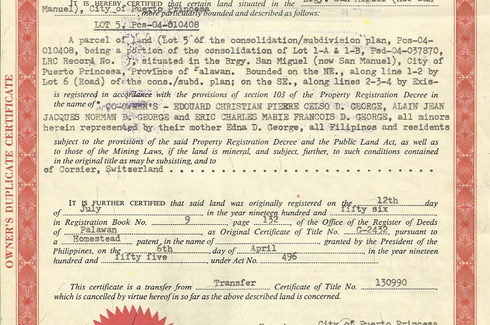 IT IS HEREBY CERTIFIED that certain land situated in the Brgy. San Miguel (now San
Manuel), City of Puerto Princesa
, more particularly bounded and described as follows:
LOT 5, Pcs-04-010408
A parcel of land (Lot 5 of the consolidation/subdivision plan, Pcs-04-
010408, being a portion of the consolidation of Lot 1-A & 1-B, Psd-04-037870,
LRC Record No. ), situated in the Brgy. San Miguel (now San Manuel), City of
Puerto Princesa, Province of Palawan. Bounded on the NE., along line 1-2 by
Lot 6 (Road) of the cons./subd. plan; on the SE., along lines 2-3-4 by Exis-
is registered in accordance with the provisions of section 103 of the Property Registration Decree in
the name of CO-OWNERS - EDOUARD CHRISTIAN PIERRE CELSO D. GEORGE, ALAIN JEAN
JACQUES NORMAN D. GEORGE and ERIC CHARLES MARIE FRANCOIS D. GEORGE, all minors
herein represented by their mother Edna D. George, all Filipinos and residents
subject to the provisions of the said Property Registration Decree and the Public Land Act, as well as
to those of the Mining Laws, if the land is mineral, and subject, further, to such conditions contained
in the original title as may be subsisting, and to
of Corsier, Switzerland
IT IS FURTHER CERTIFIED that said land was originally registered on the 12th day
of July, in the year nineteen hundred and fifty six
in Registration Book No. 9 page 132 of the Office of the Register of Deeds
of Palawan as Original Certificate of Title No. G-2432 pursuant to
a Homestead patent, in the name of granted by the President of the
Philippines, on the 6th day of April, in the year nineteen
hundred and fifty five, under Act No. 496
This certificate is a transfer from Transfer Certificate of Title No. 130990
which is cancelled by virtue hereof in so far as the above described land is concerned.
City of Puerto Princesa
OWNER'S DUPLICATE CERTIFICATE